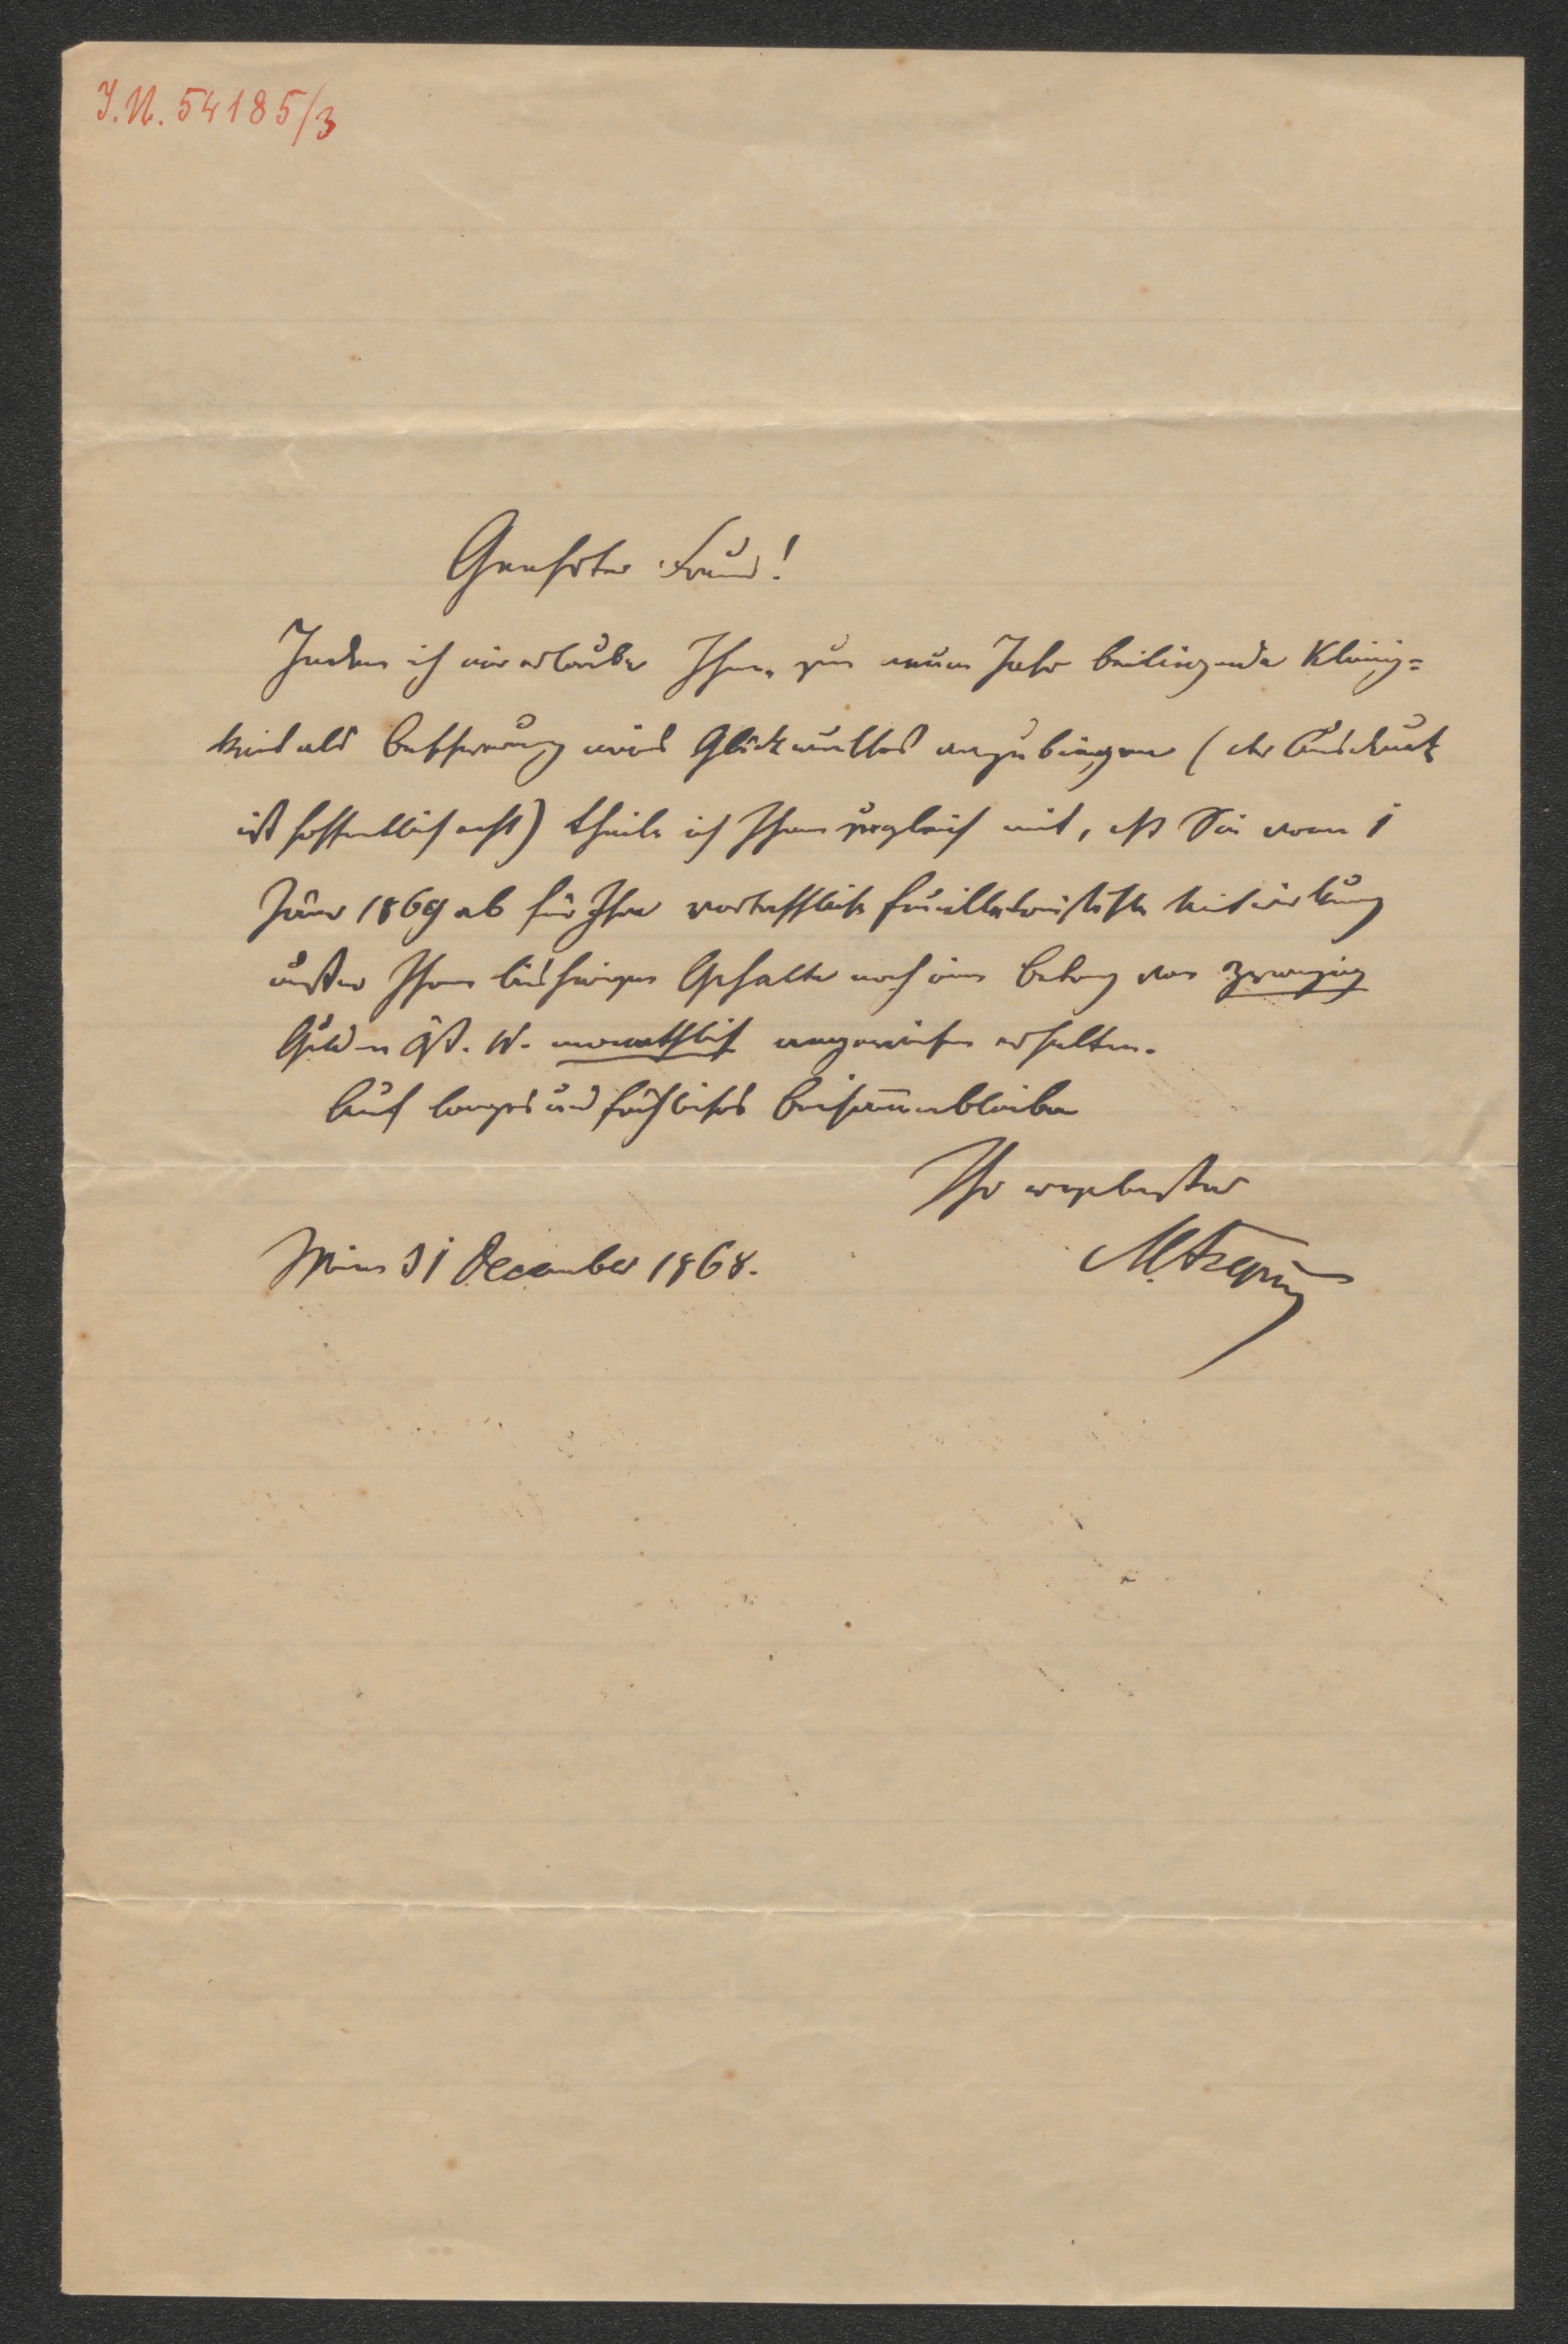 I.N. 54185/3
Geehrter Freund!
Indem ich mir erlaube Ihnen zum neuen Jahr beiliegende Kleinig=
keit als eines Glückwunsches anzubringen (der Ausdruck
ist hoffentlich echt) theile ich Ihnen zugleich mit, daß Sie vom 1
Jäner 1869 ab für Ihre vortreffliche feuilletonistische Mitwirkung
außer Ihrem bisherigen Gehalte noch einen Betrag von zwanzig
Gulden öst. W. monatlich angewiesen erhalten.
Auf langes und fröhliches Beisam̅enbleiben
Ihr ergebenster
Wien 31 December 1868.